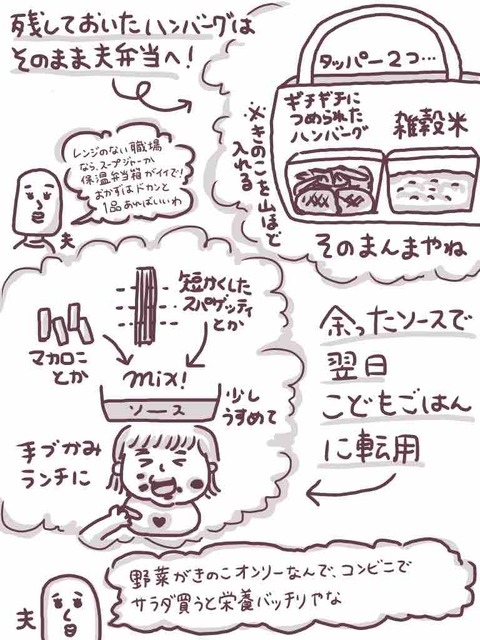 残しておいたハンバーグは
そのまま夫弁当へ!
タッパー2つ…
ギチギチに
つめられた
ハンバーグ
雑穀米
※きのこを山ほど
入れる
そのまんまやね
レンジのない職場
なら、スープジャーか
保温弁当箱がイイで!
おかずはドカンと
1品あればいいわ
夫
短かくした
スパゲッティ
とか
マカロニ
とか
mix!
ソース
少し
うすめて
手づかみ
ランチに
余ったソースで
翌日
こどもごはん
に転用
野菜がきのこオンリーなんで、コンビニで
サラダ買うと栄養バッチリやな
夫